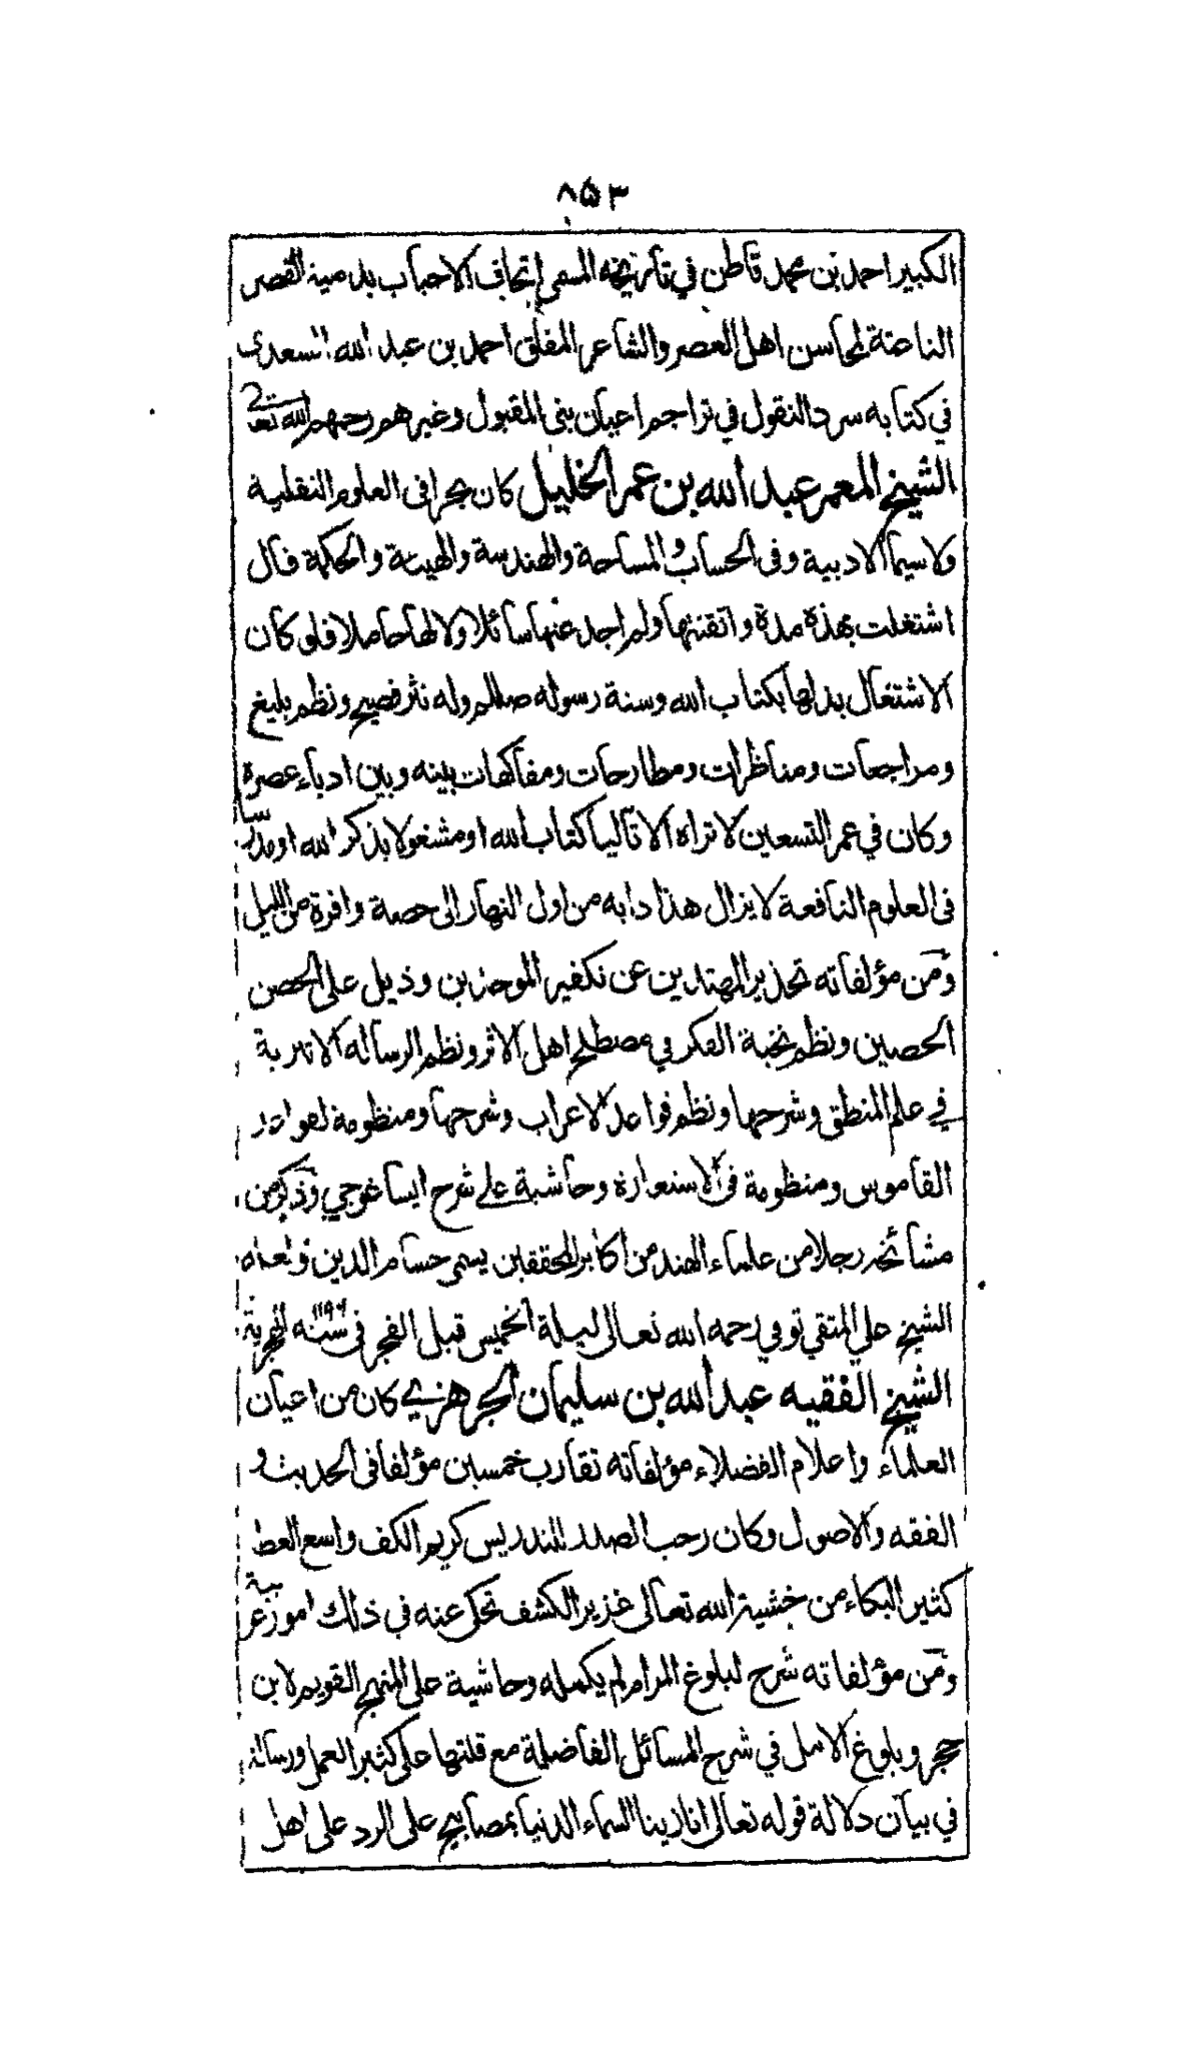 ٨٥٣
الكبير احمد بن محمد قاطن في تاريخه المسمى اتحاف الاحباب بدمية القصر
الناعتة لمحاسن اهل العصر والشاعر المفلق احمد بن عبد الله السعدى
في كتابه سرد النقول في تراجم اعيان بنى المقبول وغيرهم رحمهم الله تعا
الشيخ المعمر عبد الله بن عمر الخليل كان بحرا فى العلوم النقلية
ولاسيما الادبية وفى الحساب والمساحة والهندسة والهيئة والحكمة قال
اشتغلت بهذه مدة واتقنتها ولم اجد عنها سائلا ولا لها حاصلا فلو كان
الاشتغال بدلها بكتاب الله وسنة رسوله صللم وله نثر فصيح ونظم بليغ
ومراجعات ومناظرات ومطارحات ومفاكهات بينه وبين ادباء عصره
وكان في عمر التسعين لا تراه الا تاليا كتاب الله او مشغولا بذكر الله او مدارسا
فى العلوم النافعة لا يزال هذا دابه من اول النهار الى حصة وافرة من الليل
ومن مؤلفاته تحذير المهتدين عن تكفير الموحدين وذيل على الحصن
الحصين ونظم نخبة الفكر في مصطلح اهل الاثر ونظم الرسالة الاثيرية
في علم المنطق وشرحها ونظم قواعد الاعراب وشرحها ومنظومة لقواعد
القاموس ومنظومة فى الاستعارة وحاشية على شرح ايساغوجي وذكر من
مشائخه رجلا من علماء الهند من اكابر المحققين يسمى حسام الدين ولعله
الشيخ علي المتقي توفي رحمه الله تعالى ليلة الخميس قبل الفجر فى سنة الهجرية
الشيخ الفقيه عبد الله بن سليمان الجرهزي كان من اعيان
العلماء واعلام الفضلاء مؤلفاته تقارب خمسين مؤلفا فى الحديث و
الفقه والاصول وكان رحب الصدر للتدريس كريم الكف واسع العط
كثير البكاء من خشية الله تعالى غزير الكشف تحكى عنه في ذلك امور غريبة
ومن مؤلفاته شرح لبلوغ المرام لم يكمله وحاشية على المنهج القويم لابن
حجر وبلوغ الامل في شرح المسائل الفاضلة مع قلتها على كثير العمل ورسالة
في بيان دلالة قوله تعالى انا زينا السماء الدنيا بمصابيح على الرد على اهل